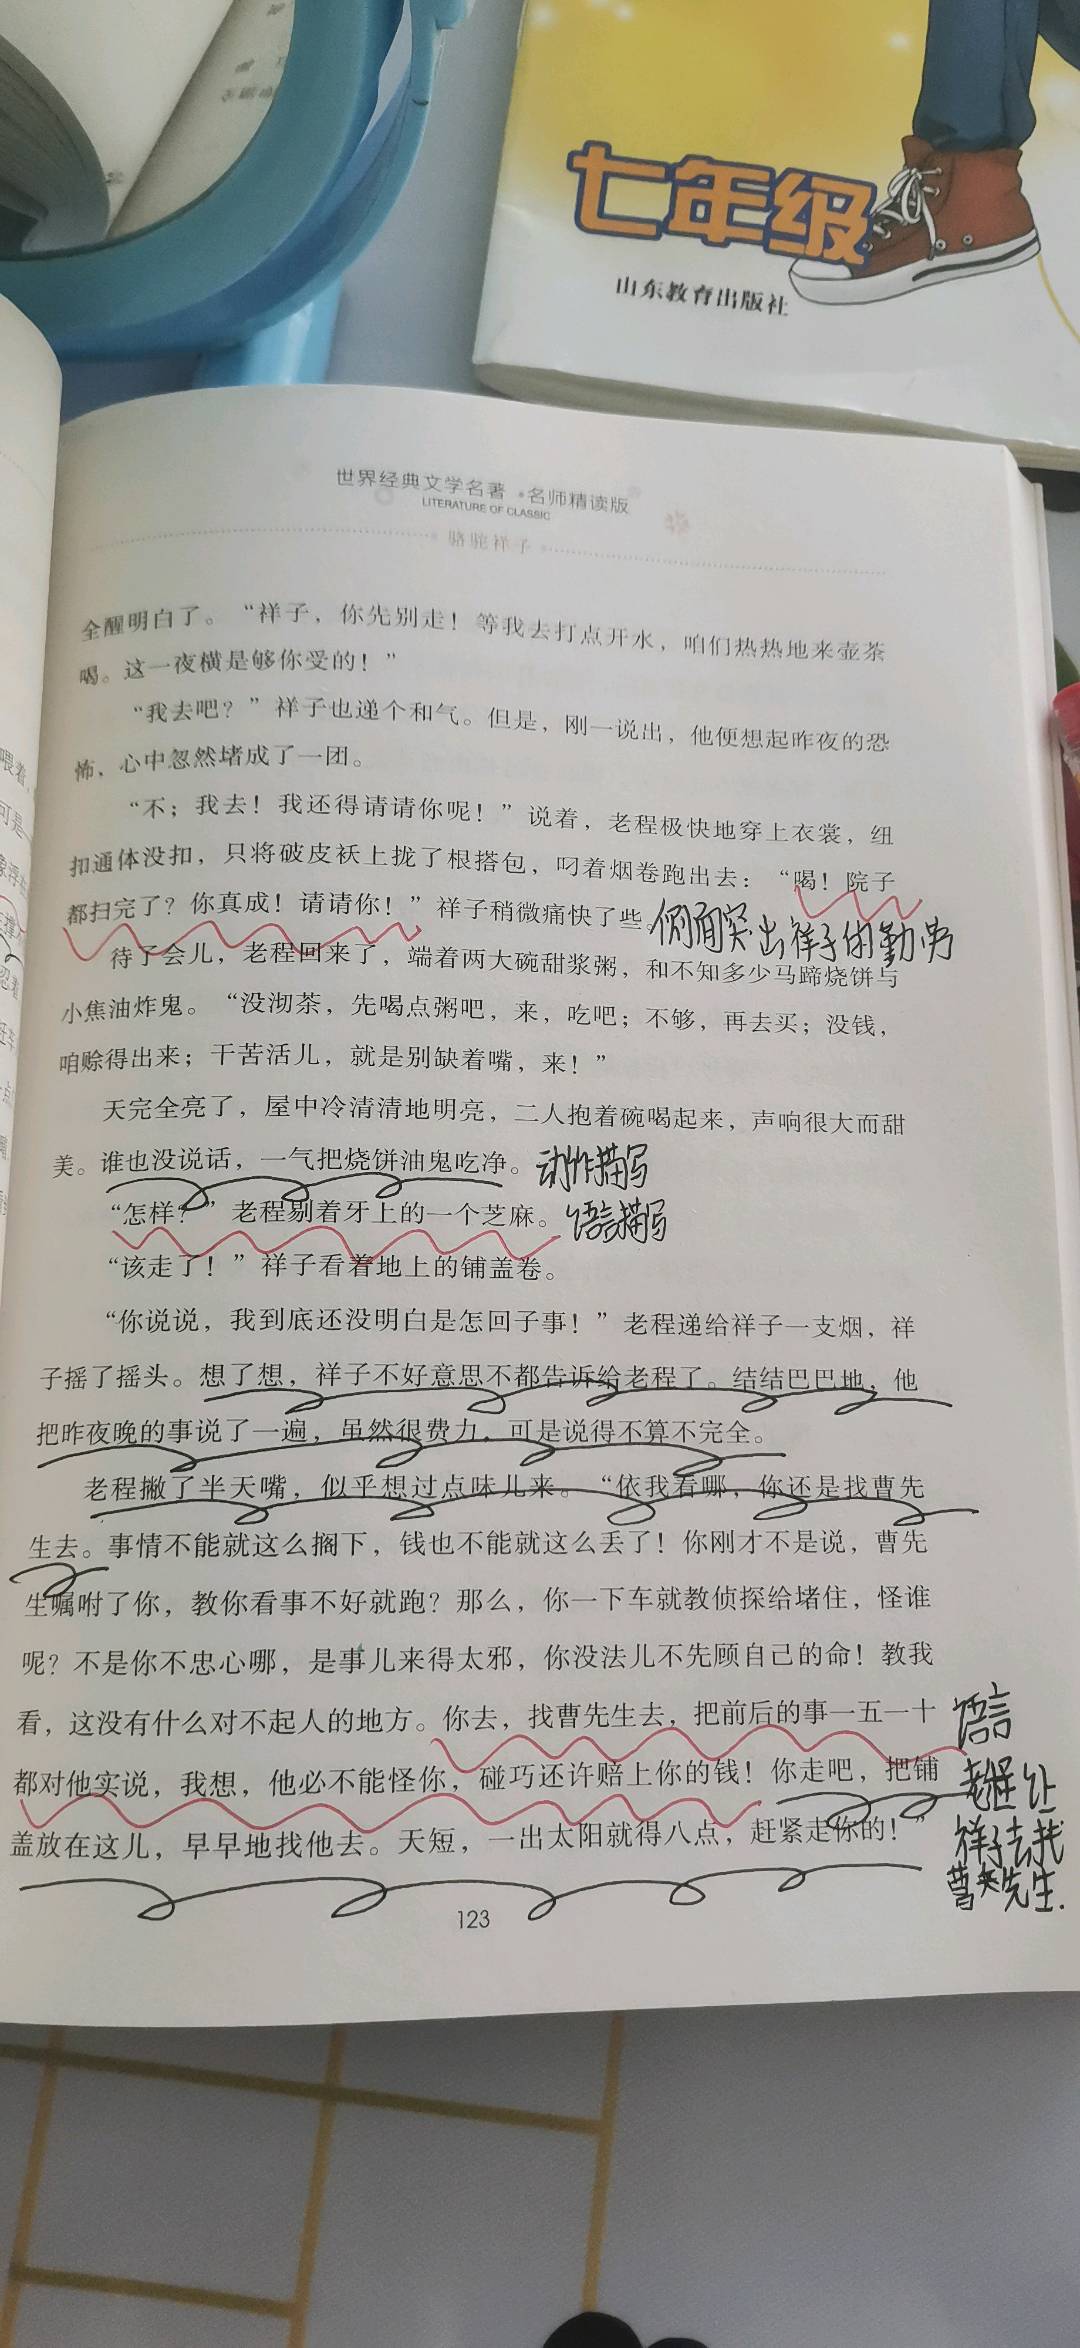 七年级
山东教育出版社
世界经典文学名著·名师精读版
LITERATURE OF CLASSIC
骆驼祥子
全醒明白了。“祥子，你先别走！等我去打点开水，咱们热热地来壶茶
喝。这一夜横是够你受的！”
“我去吧？”祥子也递个和气。但是，刚一说出，他便想起昨夜的恐
怖，心中忽然堵成了一团。
“不；我去！我还得请请你呢！”说着，老程极快地穿上衣裳，纽
扣通体没扣，只将破皮袄上拢了根搭包，叼着烟卷跑出去：“喝！院子
都扫完了？你真成！请请你！”祥子稍微痛快了些。侧面突出祥子的勤劳
待了会儿，老程回来了，端着两大碗甜浆粥，和不知多少马蹄烧饼与
小焦油炸鬼。“没沏茶，先喝点粥吧，来，吃吧；不够，再去买；没钱，
咱赊得出来；干苦活儿，就是别缺着嘴，来！”
天完全亮了，屋中冷清清地明亮，二人抱着碗喝起来，声响很大而甜
美。谁也没说话，一气把烧饼油鬼吃净。动作描写
“怎样？”老程剔着牙上的一个芝麻。语言描写
“该走了！”祥子看着地上的铺盖卷。
“你说说，我到底还没明白是怎回子事！”老程递给祥子一支烟，祥
子摇了摇头。想了想，祥子不好意思不都告诉给老程了。结结巴巴地，他
把昨夜晚的事说了一遍，虽然很费力，可是说得不算不完全。
老程撇了半天嘴，似乎想过点味儿来。“依我看哪，你还是找曹先
生去。事情不能就这么搁下，钱也不能就这么丢了！你刚才不是说，曹先
生嘱咐了你，教你看事不好就跑？那么，你一下车就教侦探给堵住，怪谁
呢？不是你不忠心哪，是事儿来得太邪，你没法儿不先顾自己的命！教我
看，这没有什么对不起人的地方。你去，找曹先生去，把前后的事一五一十
都对他实说，我想，他必不能怪你，碰巧还许赔上你的钱！你走吧，把铺
盖放在这儿，早早地找他去。天短，一出太阳就得八点，赶紧走你的！”
语言
老程让
祥子去找
曹先生.
123